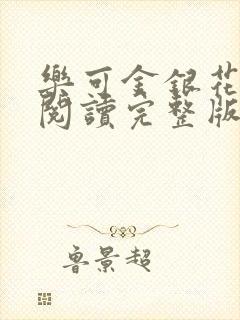 樂可金銀花
閱讀完整版
魯景超